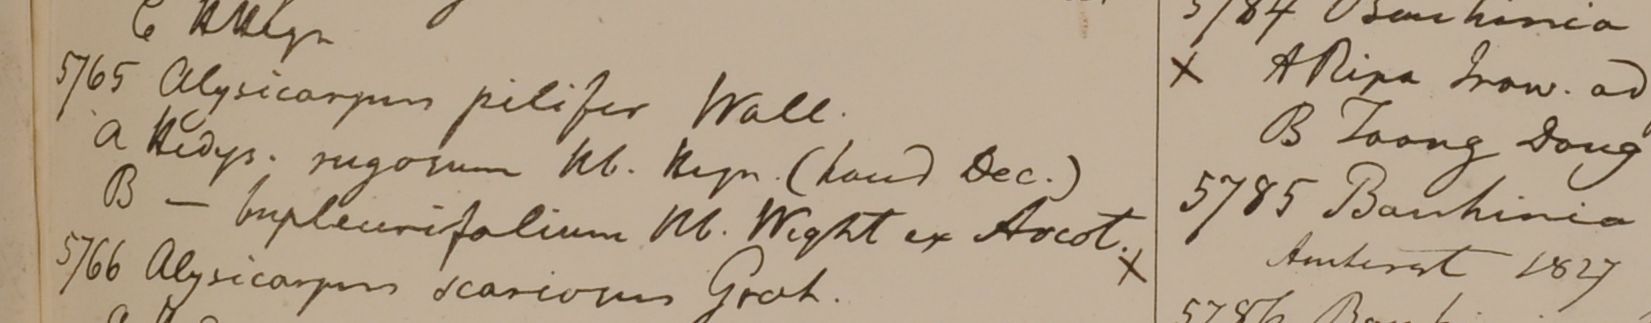 C H Heyn
5765 Alysicarpus pilifer Wall.
A Hedys. rugosum Hb. Heyn. (haud Dec.)
B — bupleurifolium Hb. Wight ex Arcot.
5766 Alysicarpus scariosus Grah.
5784 Bauhinia
x A Ripa Iraw. ad
B Toong Dong
5785 Bauhinia
Amherst 1827
x
5786 Bauhi